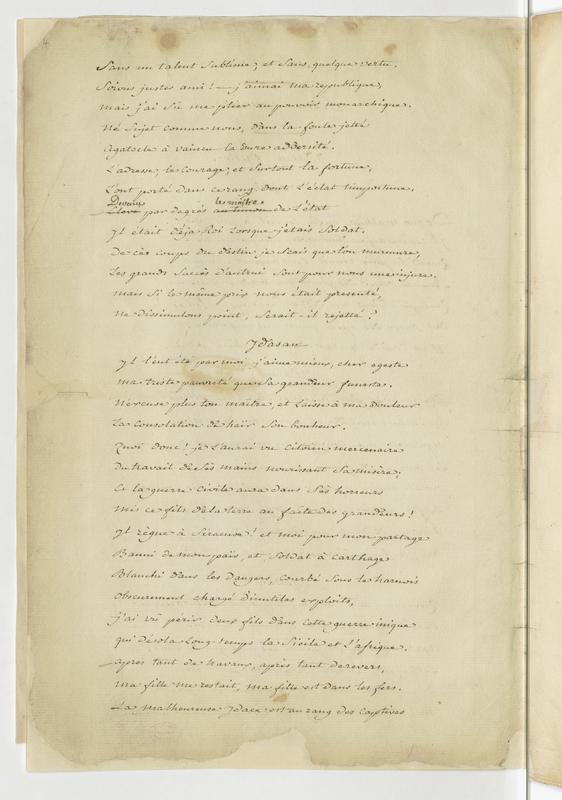 Sans un talent Sublime, et Sans quelque vertu.
Soions justes ami! — j'aimai ma republique,
mais j'ai Sû me plier au pouvoir monarchique.
Né Sujet comme nous, dans la foule jetté
Agatocle a vaincu la dure adversité.
L'adresse, le courage, et Surtout la fortune,
L'ont porté dans ce rang dont l'éclat t'importune.
Devenu le maître
Elevé par degrés au timon de L'état
Il était déja Roi lorsque j'etais Soldat.
De cès coups du destin, je Scais que l'on murmure,
Les grands Succès d'autrui Sont pour nous une injure.
mais Si le même prix nous était presenté,
ne dissimulons point, Serait-il rejetté?
Ydasan
Il l'eut été par moi, j'aime mieux, cher egeste
ma triste pauvreté que Sa grandeur funeste.
N'excuse plus ton maître, et laisse à ma Douleur
La consolation de haïr Son bonheur.
Quoi donc! je L'aurai vu Citoien mercenaire
Du travail de Sès mains nourissant Sa misère;
Et la guerre civile aura dans Sès horreurs
mis ce fils de la terre au faîte des grandeurs!
Il règne à Siracuse! et moi pour mon partage
Banni de mon païs, et Soldat à Carthage
Blanchi dans les Dangers, courbé Sous le harnois
obscurement chargé d'inutiles exploits,
j'ai vû périr deux fils dans cette guerre inique
qui désola Long-temps la Sicile et L'afrique.
Après tant de travaux, après tant de revers,
ma fille me restait, ma fille est dans les fers.
La malheureuse Ydace est au rang des Captives